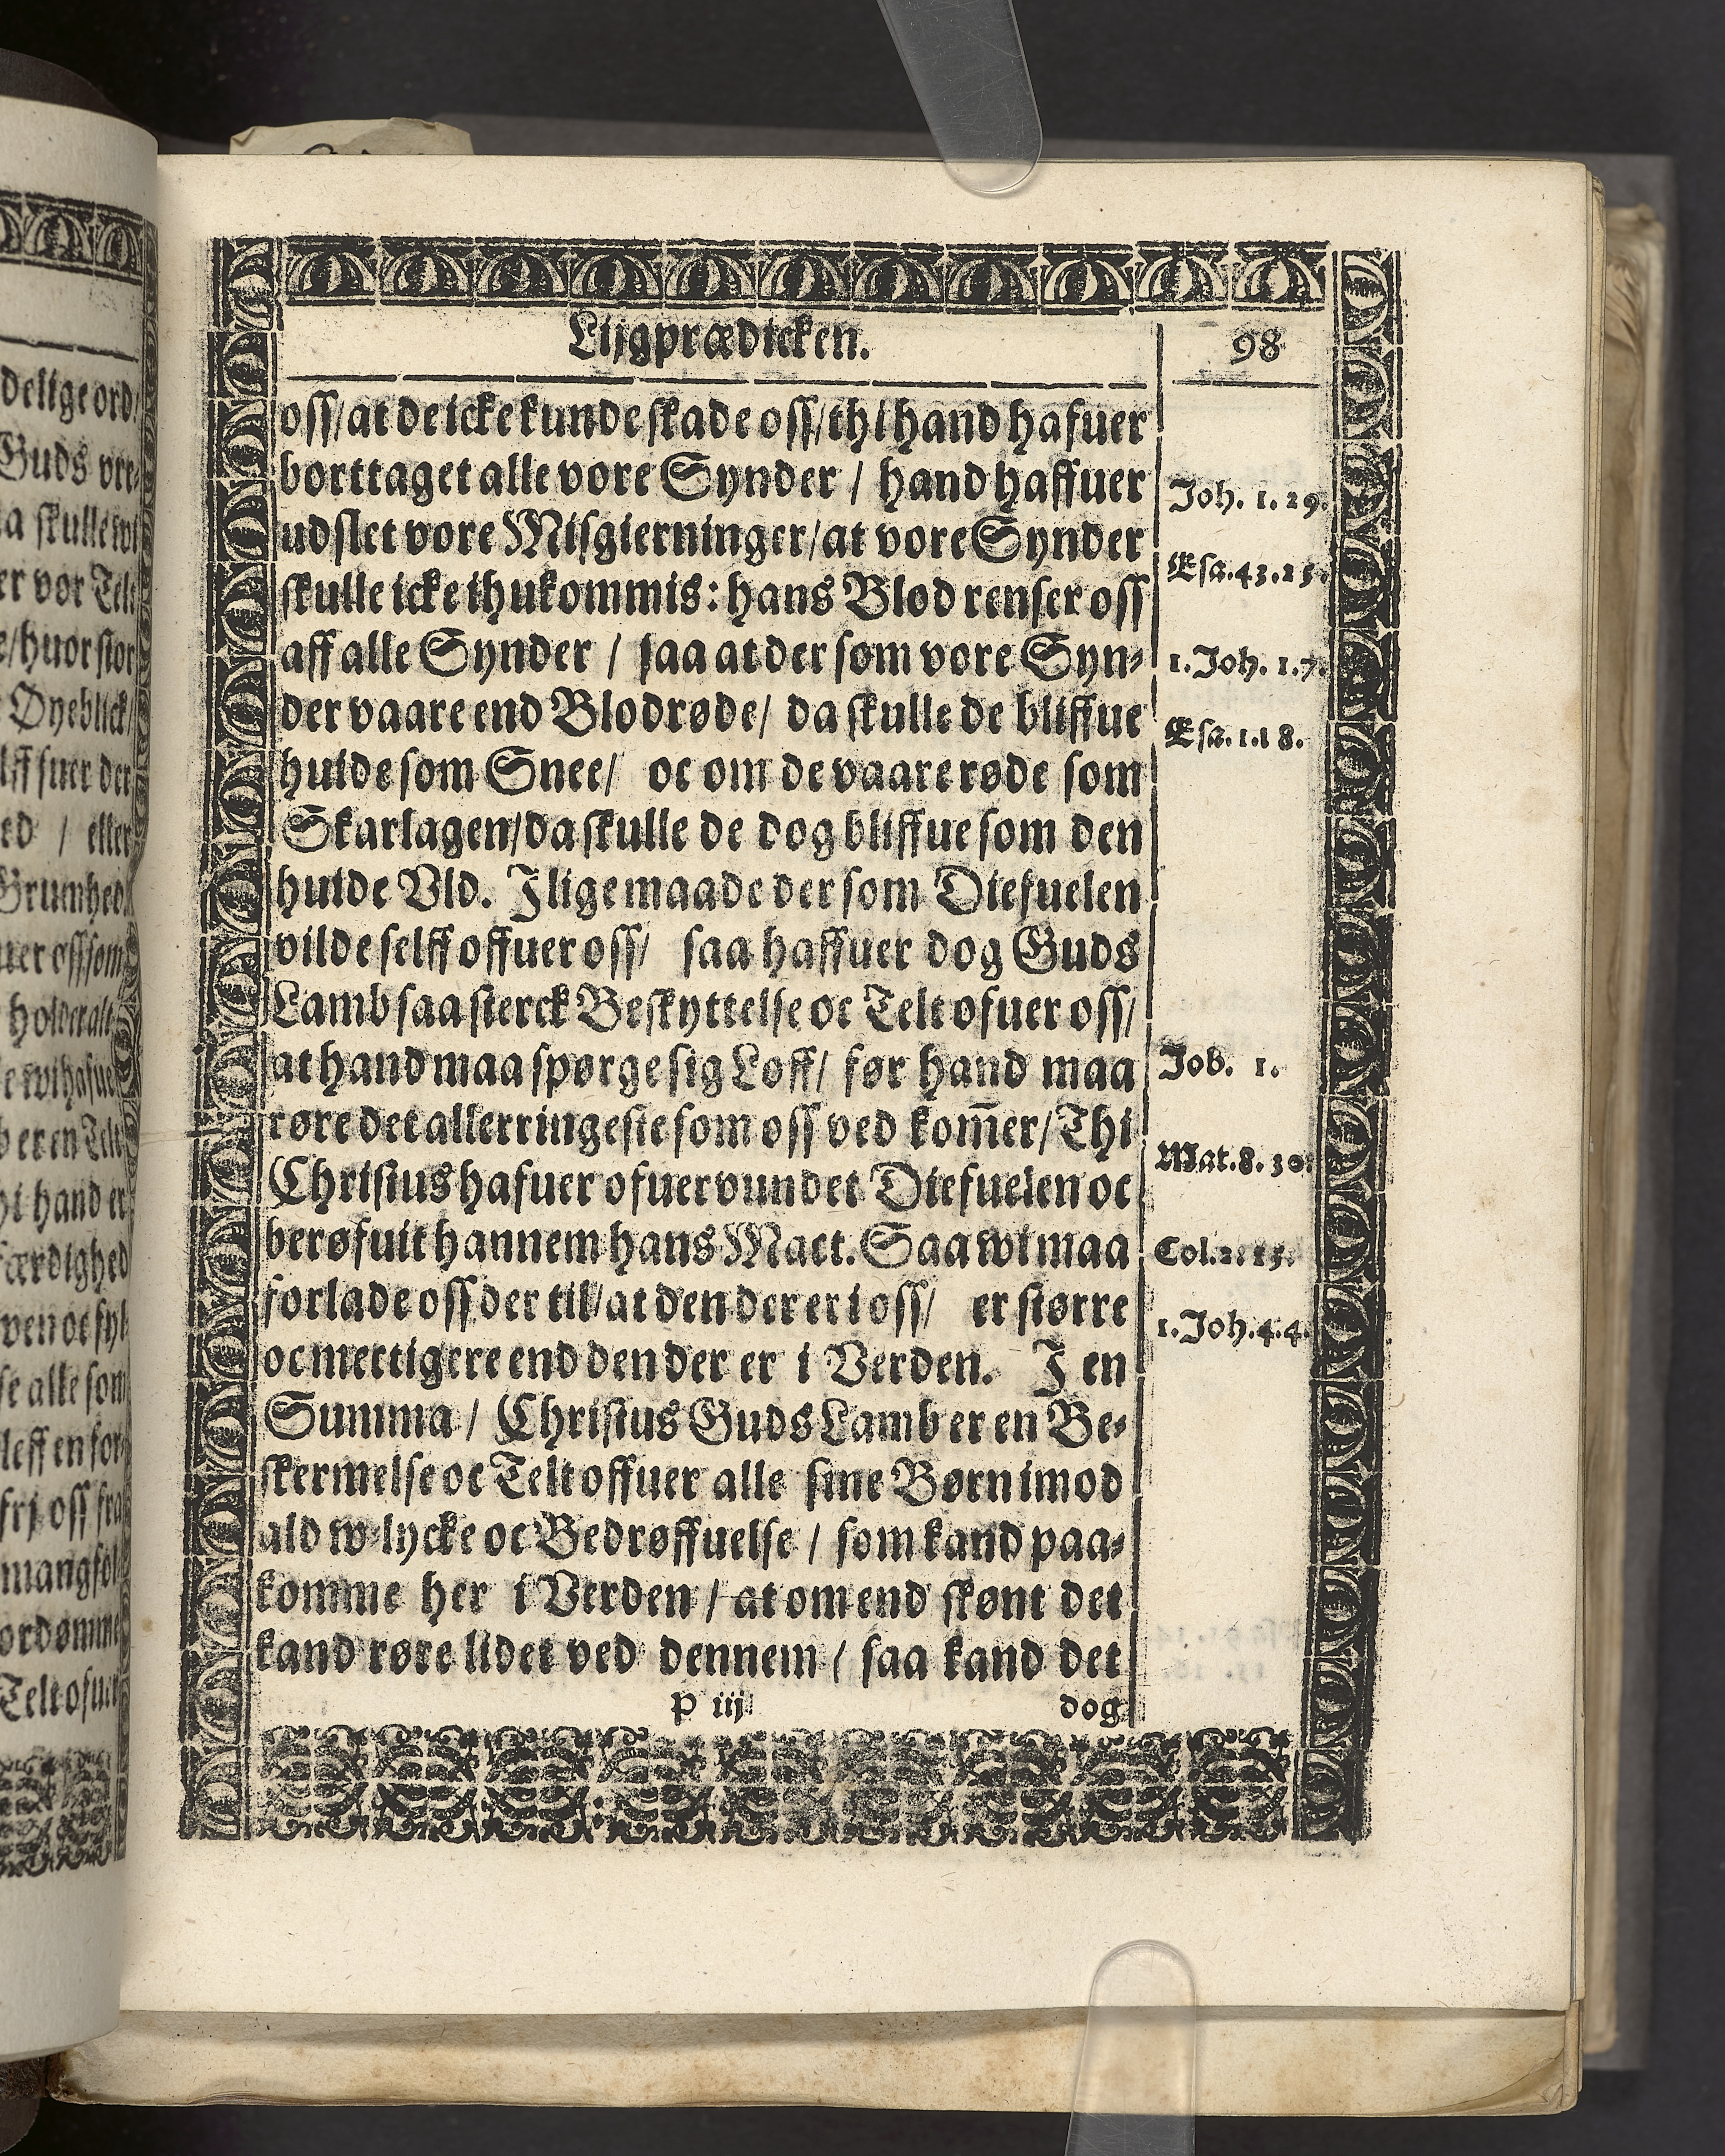 Lijgprædicken.
98
oss/at de icke kunde skade oss/thi hand hafuer
borttaget alle vore Synder / hand haffuer
udslet vore Misgierninger/at vore Synder
skulle icke ihukommis: hans Blod renser oss
aff alle Synder / saa at der som vore Syn-
der vaare end Blodrøde/ da skulle de bliffue
huide som Snee/ oc om de vaare røde som
Skarlagen/da skulle de dog bliffue som den
huide Vld. I lige maade der som Diefuelen
vilde selff offuer oss/ saa haffuer dog Guds
Lamb saa sterck Beskyttelse oc Telt ofuer oss/
at hand maa spørge sig Loff/ før hand maa
røre det allerringeste som oss ved kom̄er/Thi
Christus hafuer ofuervundet Diefuelen oc
berøfuit hannem hans Mact. Saa wi maa
forlade oss der til/at den der er i oss/ er større
oc mectigere end den der er i Verden. I en
Summa / Christus Guds Lamb er en Be-
skermelse oc Telt offuer alle sine Børn imod
ald w-lycke oc Bedrøffuelse / som kand paa-
komme her i Verden / at om end skønt det
kand røre lidet ved dennem / saa kand det
P iij
dog
Joh. 1. 29.
Esa. 43. 25.
1. Joh. 1. 7.
Esa. 1. 18.
Job. 1.
Mat. 8. 30.
Col. 2. 15.
1. Joh. 4. 4.